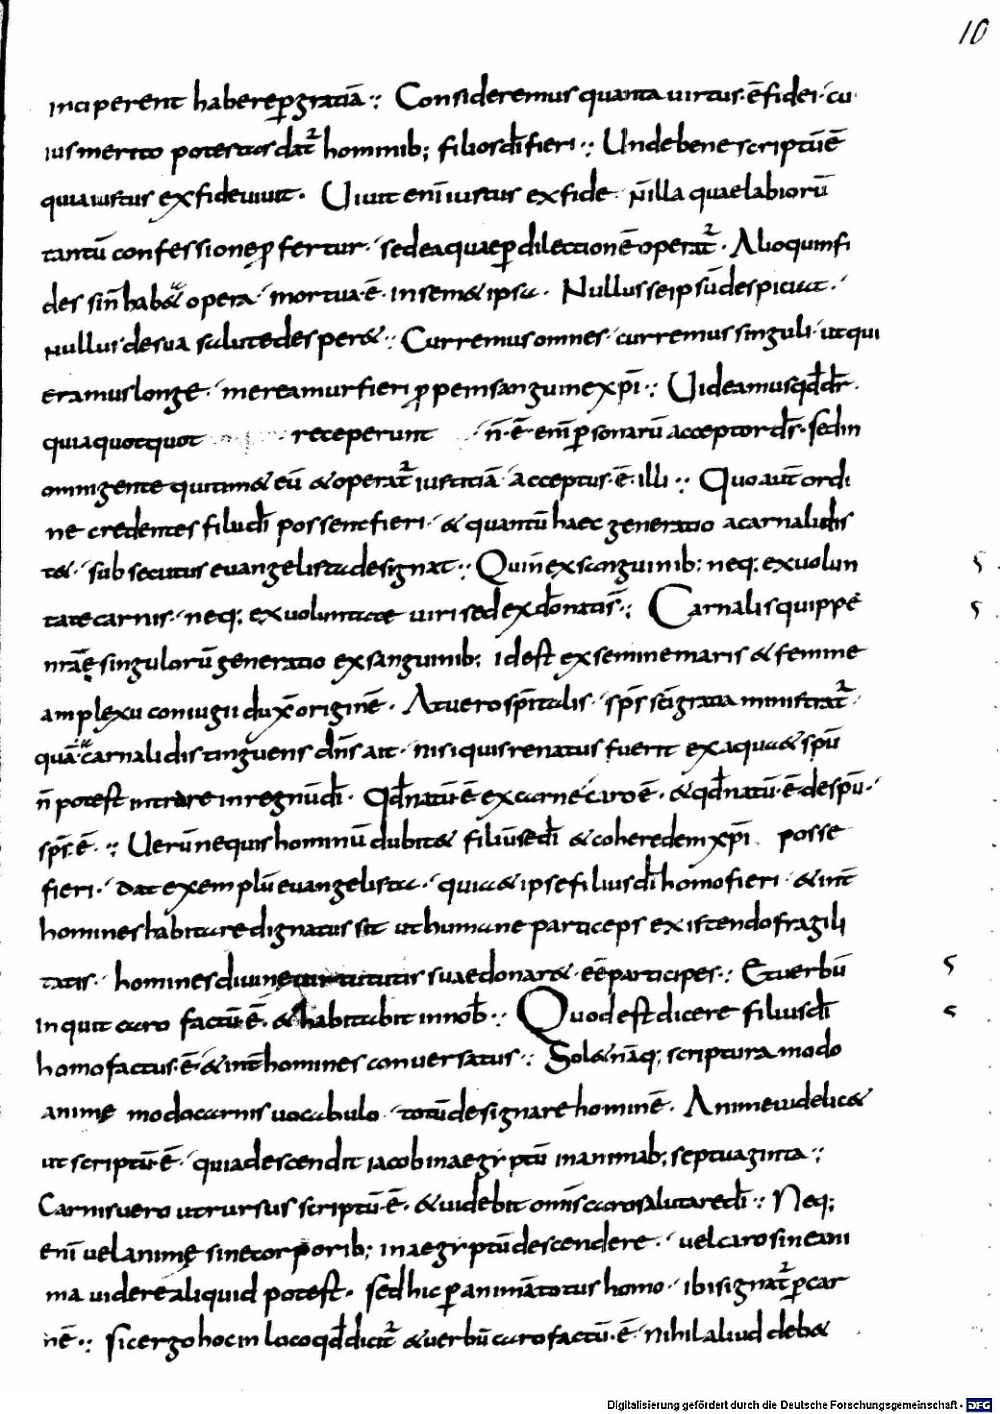 10
inciperent habere p̲ gratiā ·:· Consideremus quanta uirtus · ē fidei · cu
ius merito potestas dat̄ hominib; filios dī fieri ·:· Unde bene scriptū ē
quia iustus ex fide uiuit · Uiuit eni iustus ex fide · ñ illa quae labiorū
tantū confessione p̲fertur · sed ea quae p̲ dilectionē operat̄ · Alioquin fi
des si ñ hab& opera · mortua · ē · in sem& ipsa · Nullus se ipsū despiciat ·
Nullus de sua salute desper& ·:· Curremus omnes · curremus singuli · ut qui
eramus longe · mereamur fieri p̲pe in sanguine xp̄i ·:· Uideamus qđ dr̄ ·
quia quotquot receperunt ñ · ē · eni p̲sonarū acceptor ds̄ · sed in
omni gente qui tim& eū & operat̄ iustitiā · acceptus · ē · illi ·:· Quo aut̄ ordi
ne credentes filii dī possent fieri · & quantū haec generatio a carnali dis
t& · subsecutus euangelista designat ·:· Qui ñ ex sanguinib; neq; ex uolun
tate carnis · neq; ex uoluntate uiri sed ex dō nati s̄ ·:· Carnalis quippe
nr̄a ę singulorū generatio ex sanguinib; id est ex semine maris & femine
amplexu coniugii dux̄ originē · At uero sp̄italis · sp̄s sc̄i gratia ministrat̄ ·
quā a carnali distinguens dn̄s ait · nisi quis renatus fuerit ex aqua & sp̄u
ñ potest intrare in regnū dī · Qđ natū · ē ex carne caro ē · & qđ natū · ē de sp̄u ·
sp̄s · ē · ·:· Uerū ne quis hominū dubit& filiū se dī & coheredem xp̄i posse
fieri · dat exemplū euangelista · quia & ipse filius dī homo fieri · & int̄
homines habitare dignatus sit ut humane particeps existendo fragili
tatis · homines diuine uirtutis suae donar& · eē participes ·:· Et uerbū
inquit caro factū · ē · & habitabit in nob̄ ·:· Quod est dicere filius dī
homo factus · ē · & int̄ homines conuersatus ·:· Sol& nāq; scriptura modo
animę modo carnis uocabulo · totū designare hominē · Anime uidelic&
ut scriptū · ē · quia descendit iacob in aegyptū in animab; septuaginta ·:·
Carnis uero ut rursus scriptū · ē · & uidebit omīs caro salutare dī ·:· Neq;
enī uel animę sine corporib; in aegyptū descendere · uel caro sine ani
ma uidere aliquid potest · sed hic p̲ animā totus homo · ibi signat̄ p̲ car
nē ·:· Sic ergo hoc in loco qđ dicit̄ & uerbū caro factū · ē · nihil aliud deb&
Digitalisierung gefördert durch die Deutsche Forschungsgemeinschaft - DFG